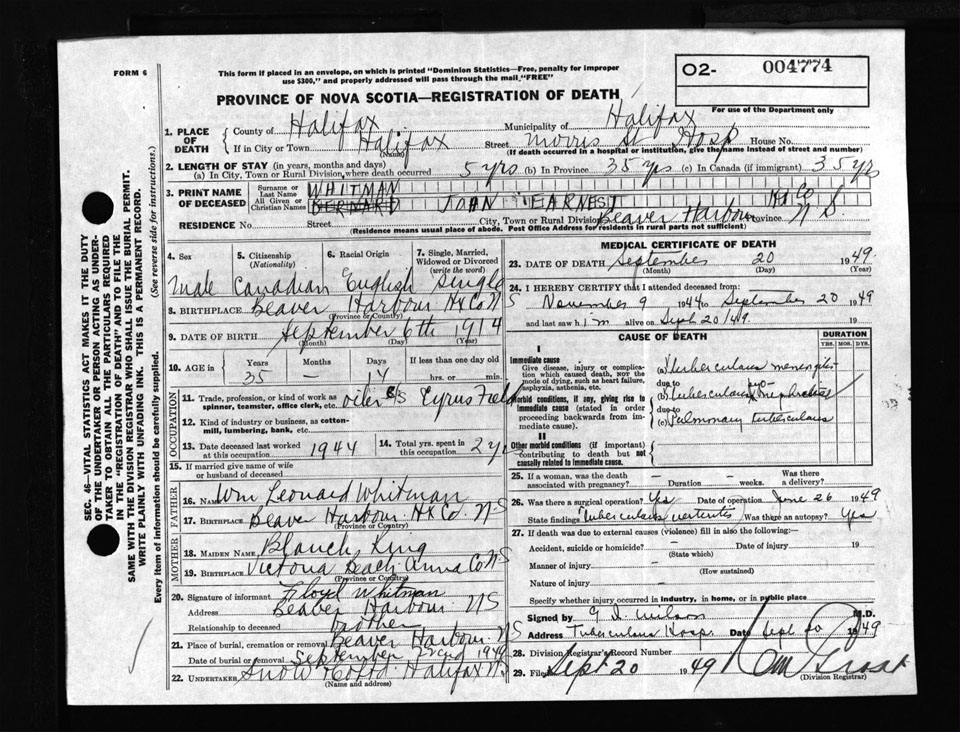 FORM 6
This form if placed in an envelope, on which is printed "Dominion Statistics—Free, penalty for improper
use $300," and properly addressed will pass through the mail "FREE"
O2- 004774
PROVINCE OF NOVA SCOTIA—REGISTRATION OF DEATH
For use of the Department only
1. PLACE OF DEATH { County of Halifax Municipality of Halifax
If in City or Town Halifax (Name) Street Morris St Hosp House No.
(If death occurred in a hospital or institution, give the name instead of street and number)
2. LENGTH OF STAY (in years, months and days)
(a) In City, Town or Rural Division, where death occurred 5 yrs (b) In Province 35 yrs (c) In Canada (if immigrant) 35 yrs
3. PRINT NAME OF DECEASED { Surname or Last Name WHITMAN
All Given or Christian Names BERNARD JOHN EARNEST
Hx Co
RESIDENCE No. Street City, Town or Rural Division Beaver Harbour Province N S.
(Residence means usual place of abode. Post Office Address for residents in rural parts not sufficient)
4. Sex 5. Citizenship (Nationality) 6. Racial Origin 7. Single, Married, Widowed or Divorced (write the word)
male Canadian English Single
8. BIRTHPLACE Beaver Harbour Hx Co N S
(Province or Country)
9. DATE OF BIRTH September 6th 1914
(Month) (Day) (Year)
10. AGE in { Years Months Days If less than one day old
35 – 14 hrs. or min.
OCCUPATION
11. Trade, profession, or kind of work as spinner, teamster, office clerk, etc. oiler C/S Cyrus Field
12. Kind of industry or business, as cotton-mill, lumbering, bank, etc.
13. Date deceased last worked at this occupation 1944 14. Total yrs. spent in this occupation 2 yrs
15. If married give name of wife or husband of deceased
FATHER
16. Name Wm Leonard Whitman
17. Birthplace Beaver Harbour Hx Co. N S
(Province or Country)
MOTHER
18. Maiden Name Blanch King
19. Birthplace Victoria Beach Anna Co N S
(Province or Country)
20. Signature of informant Floyd Whitman
Address Beaver Harbour N S
Relationship to deceased brother
21. Place of burial, cremation or removal Beaver Harbour N S
Date of burial or removal September 22nd 1949
22. UNDERTAKER Snow & Co Ltd Halifax N S
(Name and address)
MEDICAL CERTIFICATE OF DEATH
23. DATE OF DEATH September 20 1949
(Month) (Day) (Year)
24. I HEREBY CERTIFY that I attended deceased from:
November 9 1944 to September 20 1949
and last saw him alive on Sept 20/49 19
CAUSE OF DEATH
DURATION
YRS. MOS. DYS.
I
Immediate cause
Give disease, injury or complication which caused death, not the mode of dying, such as heart failure, asphyxia, asthenia, etc.
(a) Tuberculous meningitis
due to
Morbid conditions, if any, giving rise to immediate cause (stated in order proceeding backwards from immediate cause).
(b) tuberculous pyo-nephritis
due to
(c) Pulmonary tuberculosis
II
Other morbid conditions (if important) contributing to death but not causally related to immediate cause.
25. If a woman, was the death associated with pregnancy? – Duration – weeks. Was there a delivery? –
26. Was there a surgical operation? Yes Date of operation June 26 1949
State findings Tuberculous Was there an autopsy? Yes
27. If death was due to external causes (violence) fill in also the following:—
Accident, suicide or homicide? – Date of injury 19
(State which)
Manner of injury –
(How sustained)
Nature of injury –
Specify whether injury occurred in industry, in home, or in public place
Signed by M.D.
Address Tuberculous Hosp. Date Sept 20 1949
28. Division Registrar's Record Number
29. Filed Sept 20 1949
(Division Registrar)
SEC. 46—VITAL STATISTICS ACT MAKES IT THE DUTY
OF THE UNDERTAKER OR PERSON ACTING AS UNDER-
TAKER TO OBTAIN ALL THE PARTICULARS REQUIRED
IN THE "REGISTRATION OF DEATH" AND TO FILE THE
SAME WITH THE DIVISION REGISTRAR WHO SHALL ISSUE THE BURIAL PERMIT.
WRITE PLAINLY WITH UNFADING INK. THIS IS A PERMANENT RECORD.
Every item of information should be carefully supplied. (See reverse side for instructions.)